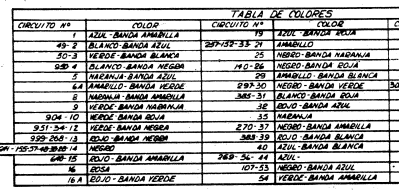 TABLA DE COLORES
CIRCUITO Nº COLOR CIRCUITO Nº COLOR
1 AZUL-BANDA AMARILLA 19 AZUL-BANDA ROJA
49-2 BLANCO-BANDA AZUL 24 AMARILLO
50-3 VERDE-BANDA BLANCA 25 NEGRO-BANDA NARANJA
4 BLANCO-BANDA NEGRA 140-26 NEGRO-BANDA ROJA
5 NARANJA-BANDA AZUL 29 AMARILLO-BANDA BLANCA
6A AMARILLO-BANDA VERDE 297-30 NEGRO-BANDA VERDE
8 NARANJA-BANDA AMARILLA 385-31 BLANCO-BANDA ROJA
9 VERDE-BANDA NARANJA 32 ROJO-BANDA AZUL
904-10 VERDE-BANDA ROJA 35 NARANJA
951-54-12 VERDE-BANDA NEGRA 270-37 NEGRO-BANDA AMARILLA
999-268-13 ROJO-BANDA NEGRA 383-39 ROJO-BANDA BLANCA
14 NEGRO 40 AZUL-BANDA BLANCA
640-15 ROJO-BANDA AMARILLA 269-36-44 AZUL-
16 ROSA 107-53 NEGRO-BANDA AZUL
16A ROJO-BANDA VERDE 54 VERDE-BANDA AMARILLA